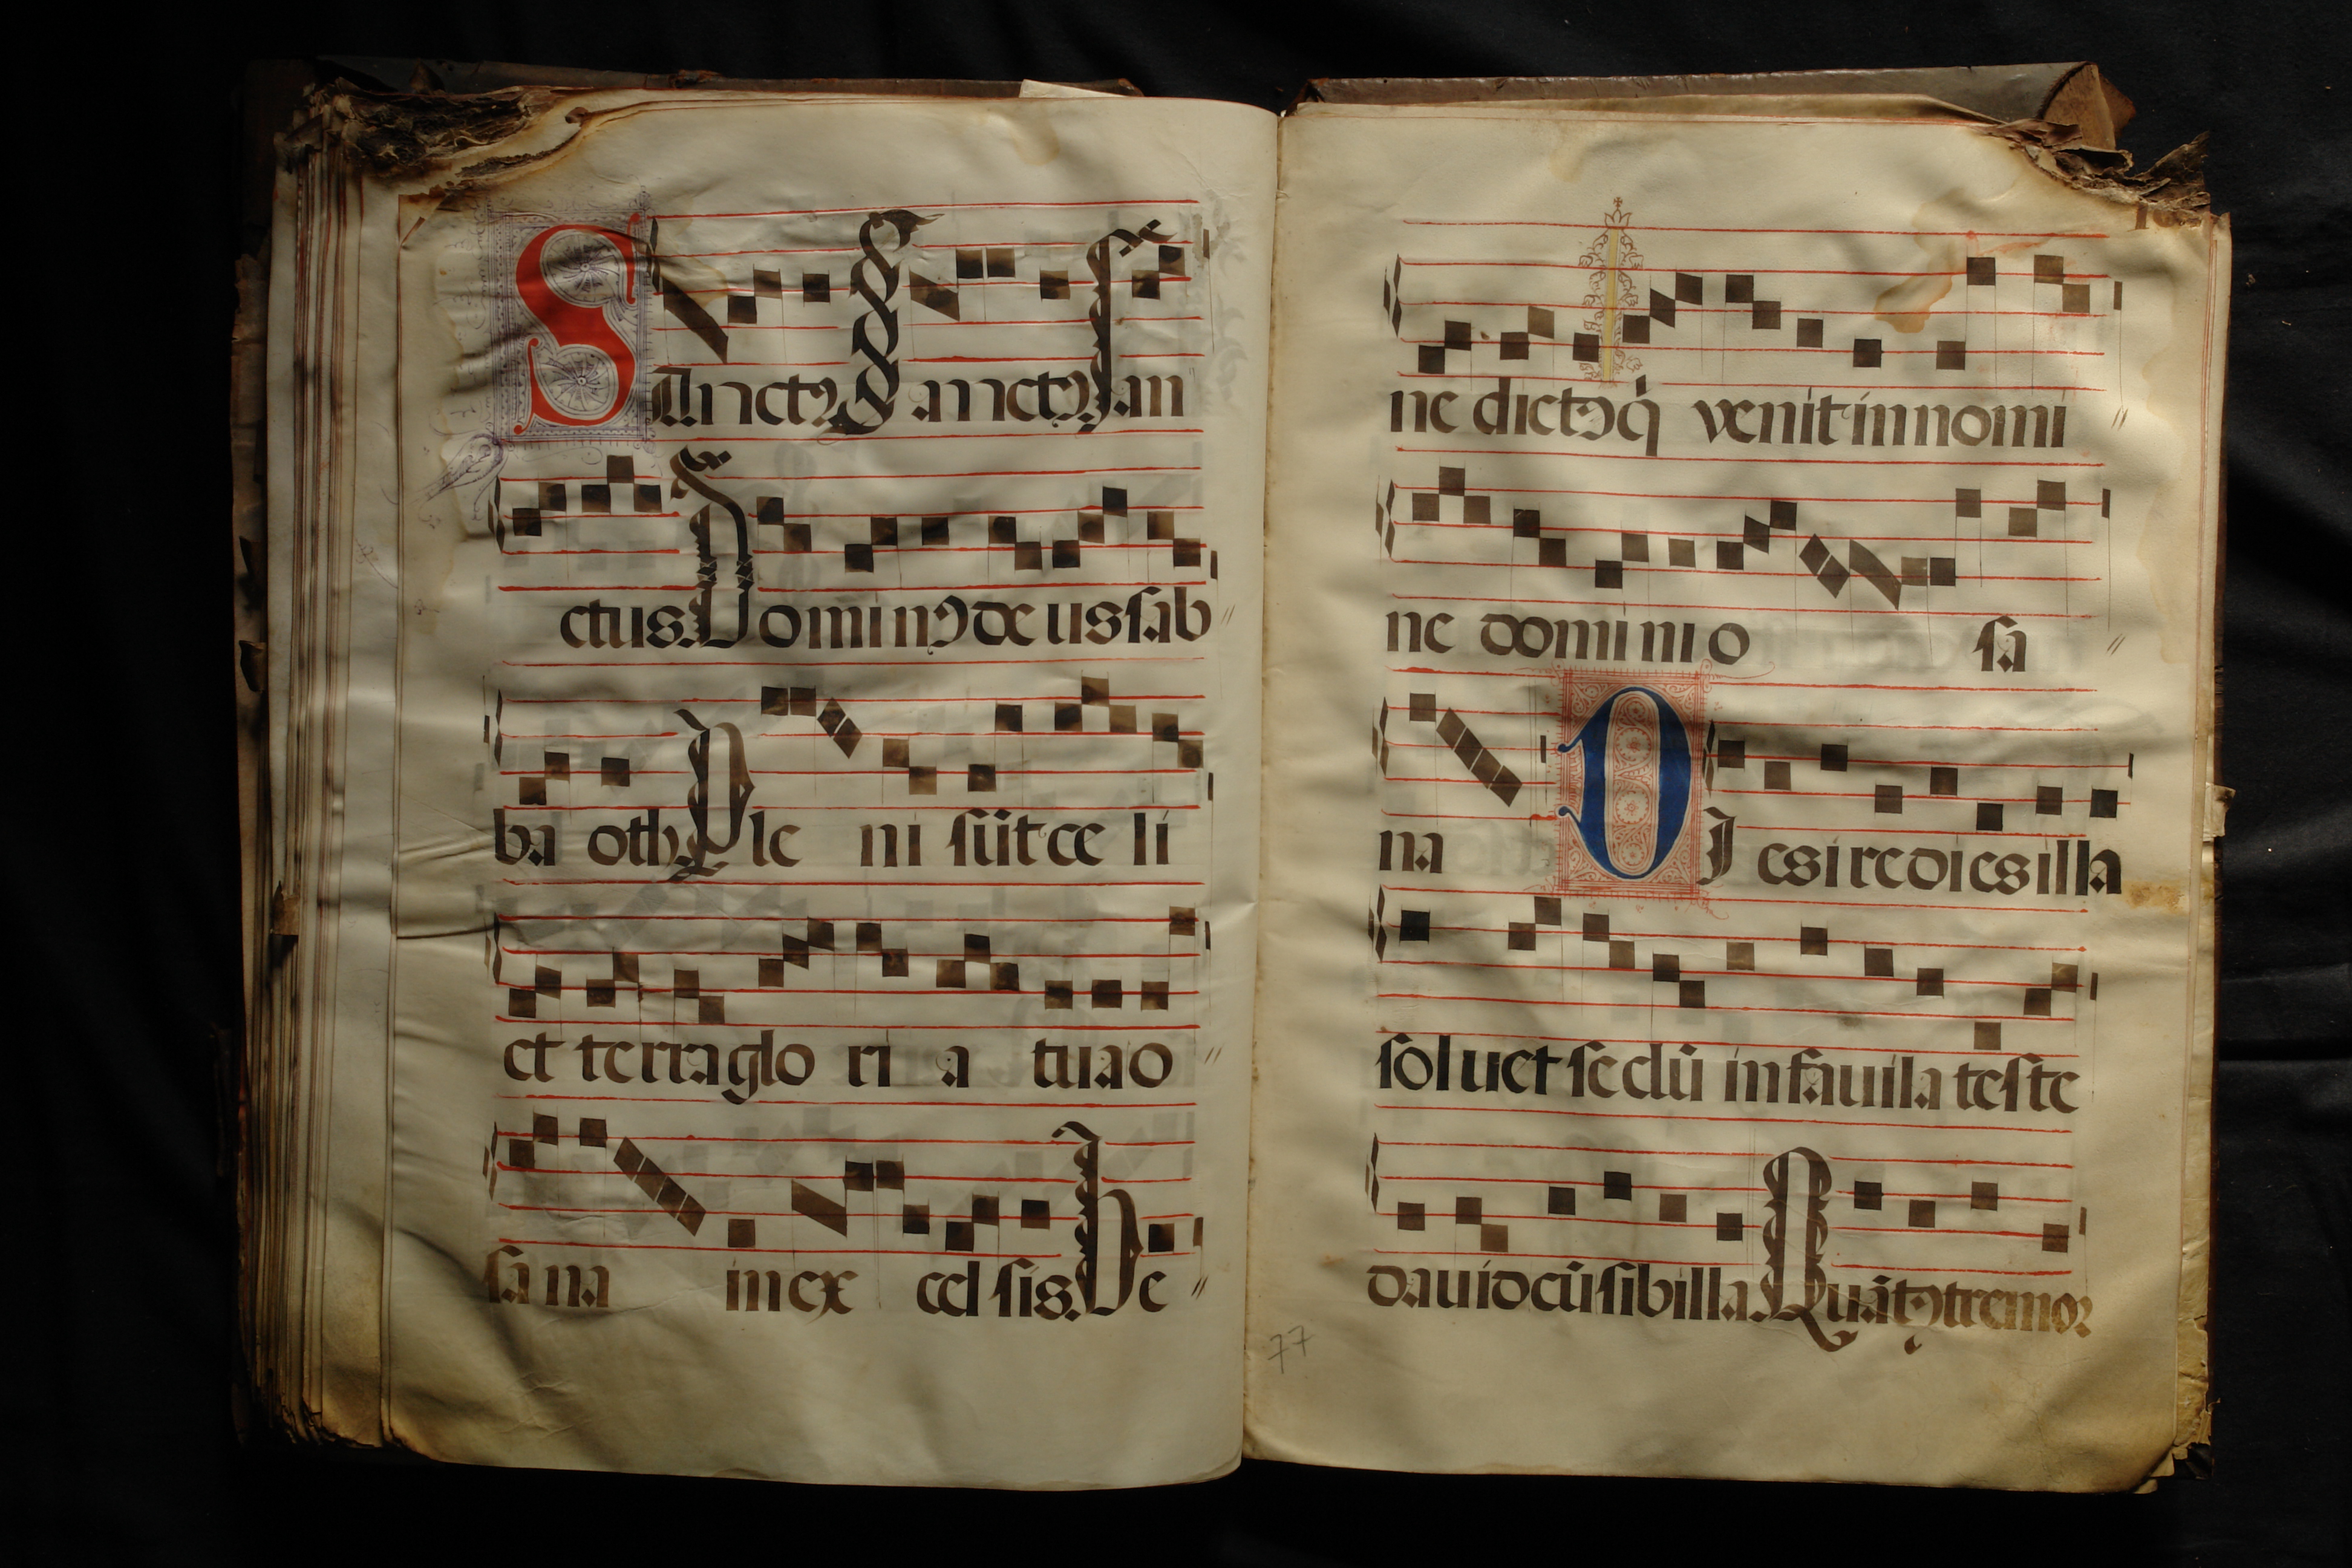 SAnctꝰ Sanctꝰ san
ctus. Dominꝰ de us sab
ba oth. Ple ni sūt ce li
et terra glo ri a tua o
sa na in ex cel sis. Be
ne dictꝰ q̇ venit in nomi
ne domini o sa
na DIes ire dies illa
soluet seclū in fauila teste
dauid cū sibilla. Quātꝰ tremor
77